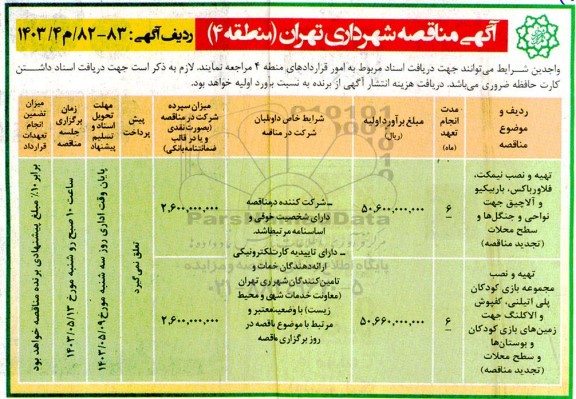 آگهی مناقصه شهرداری تهران (منطقه ۴)
ردیف آگهی: ۸۳-۸۲/م۱۴۰۳/۴
واجدین شرایط می‌توانند جهت دریافت اسناد مربوط به امور قراردادهای منطه ۴ مراجعه نمایند. لازم به ذکر است جهت دریافت اسناد داشتن
کارت حافظه ضروری می‌باشد. دریافت هزینه انتشار آگهی از برنده به نسبت برآورد اولیه خواهد بود.
ردیف و
موضوع
مناقصه
مدت
انجام
تعهد
(ماه)
مبلغ برآورد اولیه
(ریال)
شرایط خاص داوطلبان
شرکت در مناقصه
میزان سپرده
شرکت در مناقصه
(بصورت نقدی
و یا در قالب
ضمانتنامه بانکی)
پیش
پرداخت
مهلت
تحویل
اسناد و
تسلیم
پیشنهاد
زمان
برگزاری
جلسه
مناقصه
میزان
تضمین
انجام
تعهدات
قرارداد
تهیه و نصب نیمکت،
فلاورباکس، باربیکیو
و آلاچیق جهت
نواحی و جنگل‌ها و
سطح محلات
(تجدید مناقصه)
۶
۵۰,۶۰۰,۰۰۰,۰۰۰
ـ شرکت کننده در مناقصه
دارای شخصیت حقوقی و
اساسنامه مرتبط باشد.
ـ دارای تاییدیه کارت الکترونیکی
ارائه‌دهندگان خدمات و
تامین‌کنندگان شهرداری تهران
(معاونت خدمات شهری و محیط
زیست) با وضعیت معتبر و
مرتبط با موضوع مناقصه در
روز برگزاری مناقصه
۲,۶۰۰,۰۰۰,۰۰۰
تعلق نمی‌گیرد
پایان وقت اداری روز سه شنبه مورخ ۱۴۰۳/۰۵/۰۹
ساعت ۱۰ صبح روز شنبه مورخ ۱۴۰۳/۰۵/۱۳
برابر ۱۰٪ مبلغ پیشنهادی برنده مناقصه خواهد بود
تهیه و نصب
مجموعه بازی کودکان
پلی اتیلنی، کفپوش
و الاکلنگ جهت
زمین‌های بازی کودکان
و بوستان‌ها
و سطح محلات
(تجدید مناقصه)
۶
۵۰,۶۶۰,۰۰۰,۰۰۰
۲,۶۰۰,۰۰۰,۰۰۰